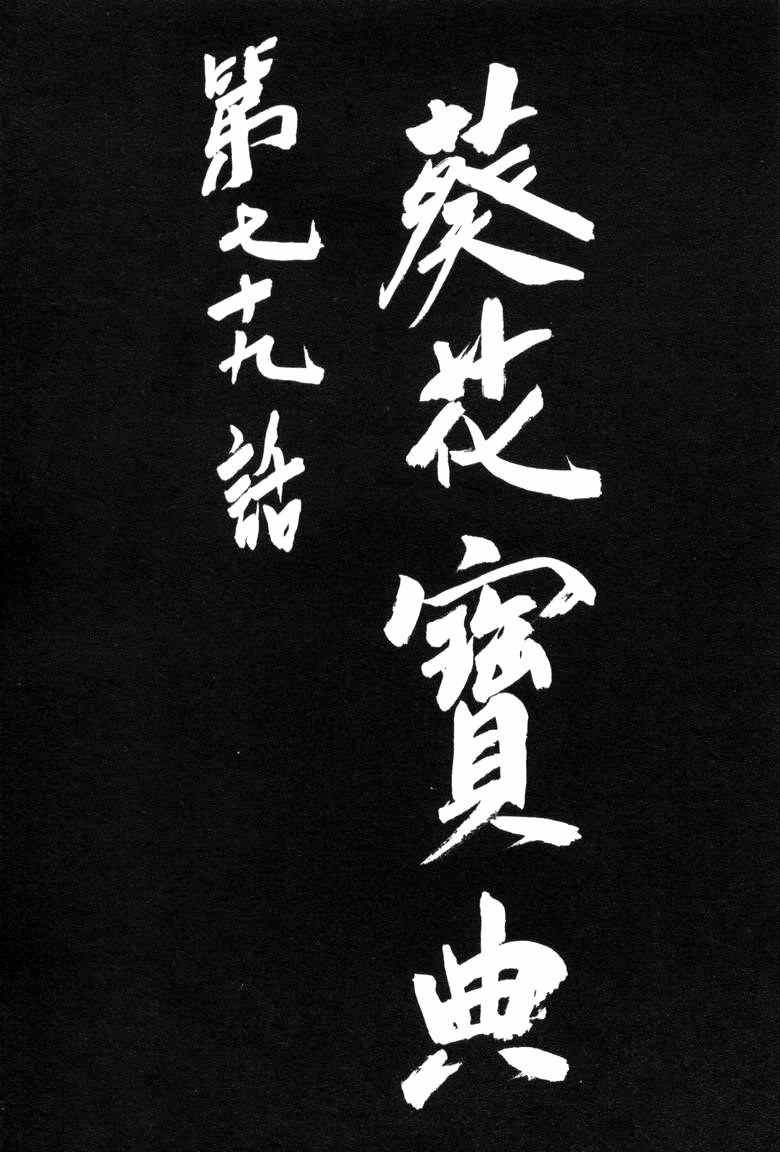 葵花寶典
第七十九話